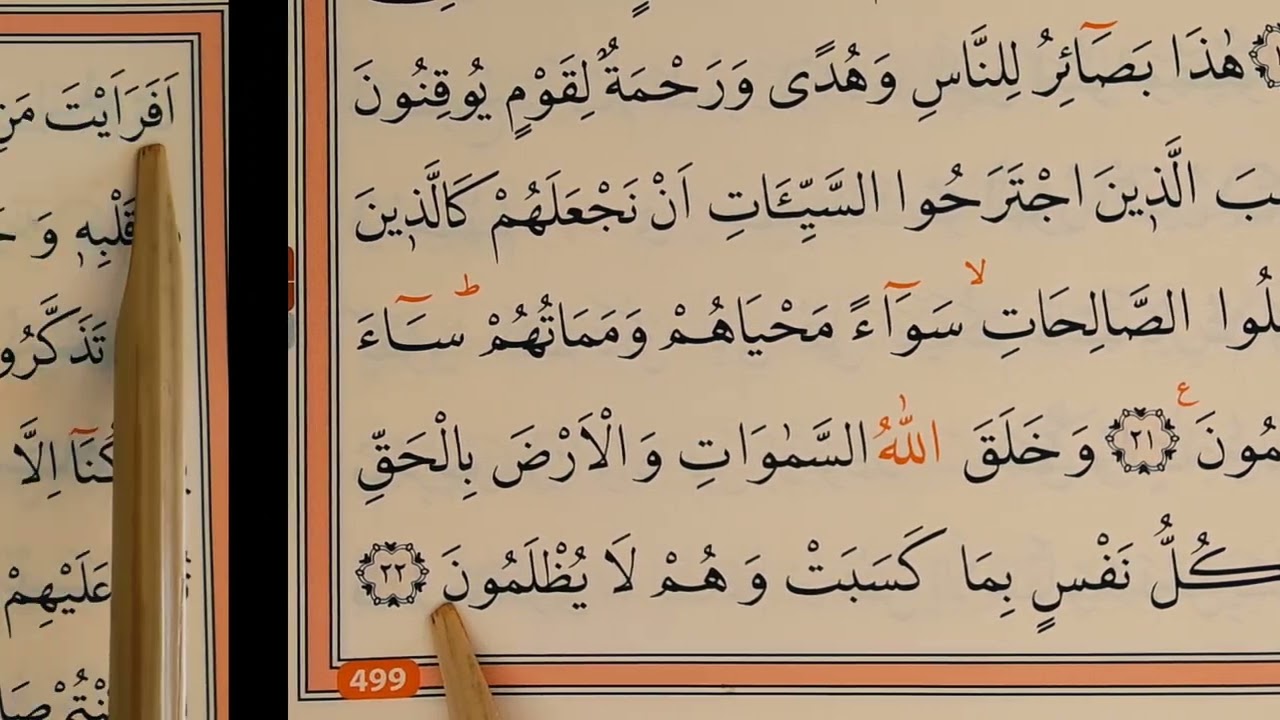 هٰذَا بَصَٓائِرُ لِلنَّاسِ وَهُدًى وَرَحْمَةٌ لِقَوْمٍ يُوقِنُونَ
الَّذ۪ينَ اجْتَرَحُوا السَّيِّـَٔاتِ اَنْ نَجْعَلَهُمْ كَالَّذ۪ينَ
الصَّالِحَاتِۙ سَوَٓاءً مَحْيَاهُمْ وَمَمَاتُهُمْۜ سَٓاءَ
﴿٢١﴾ وَخَلَقَ اللّٰهُ السَّمٰوَاتِ وَالْاَرْضَ بِالْحَقِّ
كُلُّ نَفْسٍ بِمَا كَسَبَتْ وَهُمْ لَا يُظْلَمُونَ ﴿٢٢﴾
499
اَفَرَاَيْتَ مَنِ
قَلْبِه۪ وَ
اِلَّا
عَلَيْهِمْ